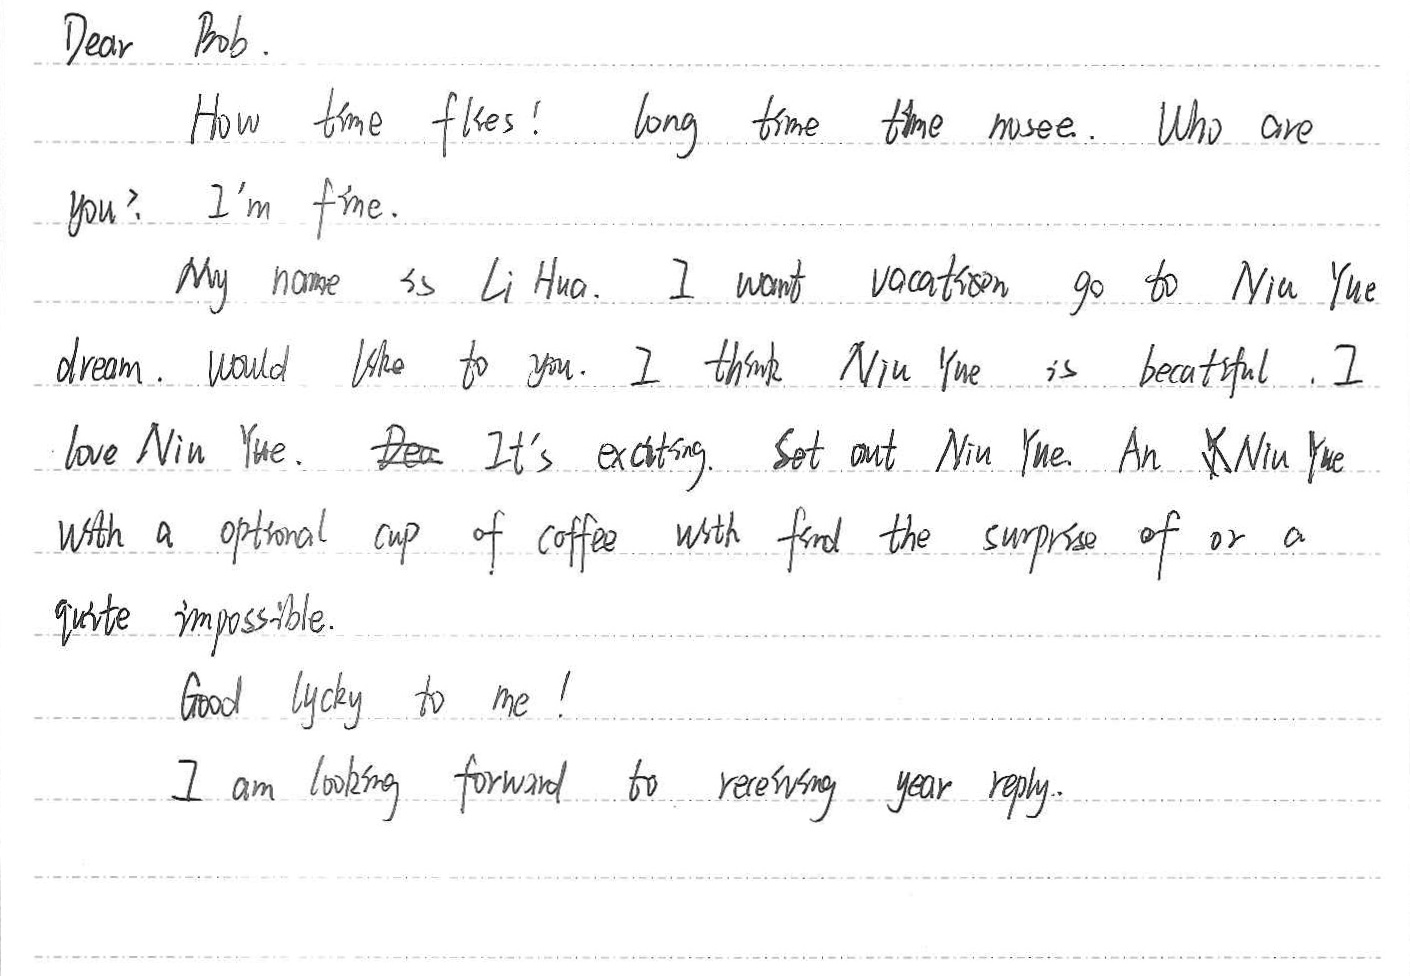 Dear Bob.
How time flies! long time time nosee. Who are
you? I'm fine.
My name is Li Hua. I want vacation go to Niu Yue
dream. would like to you. I think Niu Yue is becatiful. I
love Niu Yue. It's exciting. Set out Niu Yue. An Niu Yue
with a optional cup of coffee with find the surprise of or a
quite impossible.
Good lycky to me!
I am looking forward to receiving year reply.